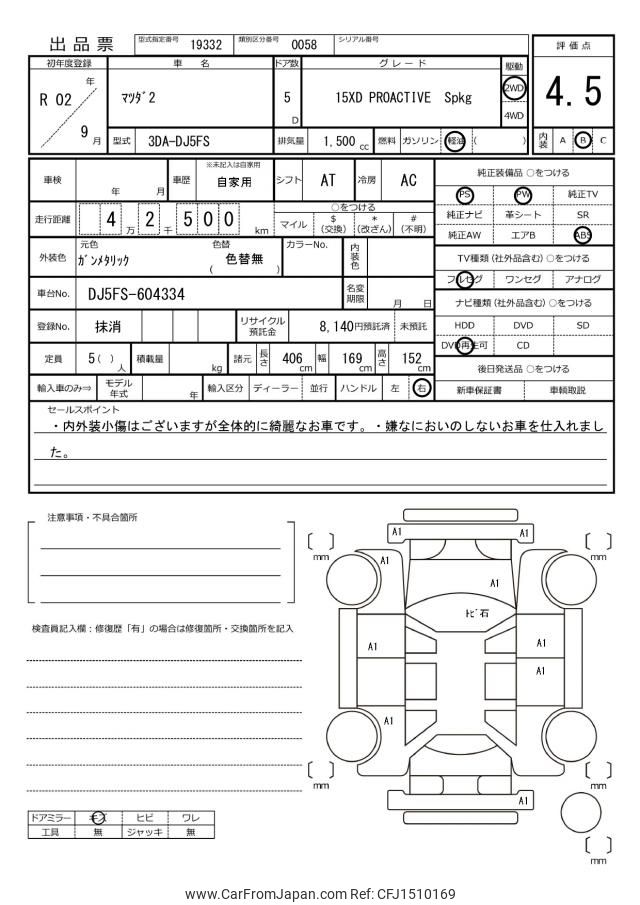 出品票
型式指定番号 19332 類別区分番号 0058 シリアル番号
評価点
4.5
内装 A B C
初年度登録 車名 ドア数 グレード 駆動
R 02 年 9 月
マツダ2
5 D
15XD PROACTIVE Spkg
2WD
4WD
型式 3DA-DJ5FS 排気量 1,500 cc 燃料 ガソリン 軽油 ( )
車検 年 月 車歴 ※未記入は自家用 自家用 シフト AT 冷房 AC
走行距離 4 万 2 千 5 0 0 km
○をつける
マイル $(交換) *(改ざん) #(不明)
外装色 元色 ガンメタリック 色替 ( 色替無 ) カラーNo. 内装色
車台No. DJ5FS-604334 名変期限 月 日
登録No. 抹消 リサイクル預託金 8,140円預託済 未預託
定員 5 ( ) 人 積載量 kg 諸元 長さ 406 cm 幅 169 cm 高さ 152 cm
輸入車のみ⇒ モデル年式 年 輸入区分 ディーラー 並行 ハンドル 左 右
純正装備品 ○をつける
PS PW 純正TV
純正ナビ 革シート SR
純正AW エアB ABS
TV種類 (社外品含む) ○をつける
フルセグ ワンセグ アナログ
ナビ種類 (社外品含む) ○をつける
HDD DVD SD
DVD再生可 CD
後日発送品 ○をつける
新車保証書 車輌取説
セールスポイント
・内外装小傷はございますが全体的に綺麗なお車です。・嫌なにおいのしないお車を仕入れまし
た。
注意事項・不具合箇所
検査員記入欄：修復歴「有」の場合は修復箇所・交換箇所を記入
ドアミラー キズ ヒビ ワレ
工具 無 ジャッキ 無
A1 A1
mm mm
A1
A1
トビ石
A1 A1
A1
A1
mm mm
A1
mm
www.CarFromJapan.com Ref: CFJ1510169